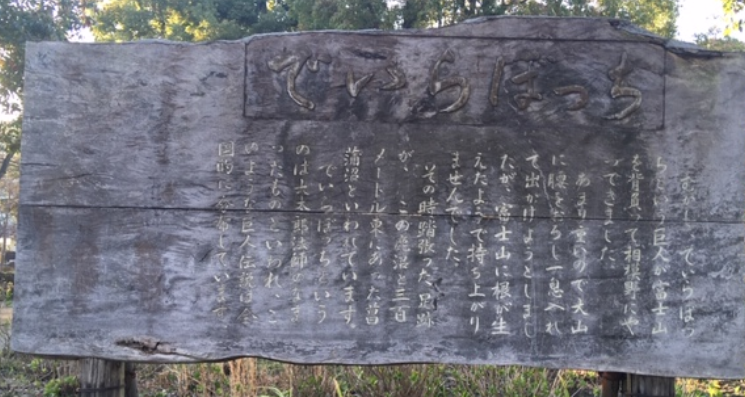 でいらぼっち
むかし、でいらぼっ
ちという巨人が富士山
を背負って相模野にや
ってきました。
あまり重いので大山
に腰をおろし一息入れ
て出かけようとしまし
たが、富士山に根が生
えたようで持ち上がり
ませんでした。
その時踏張った足跡
が、この鹿沼と三百
メートル東にあった菖
蒲沼といわれています。
でいらぼっちという
のは大太郎法師がなま
ったものといわれ、こ
のような巨人伝説は全
国的に分布しています。